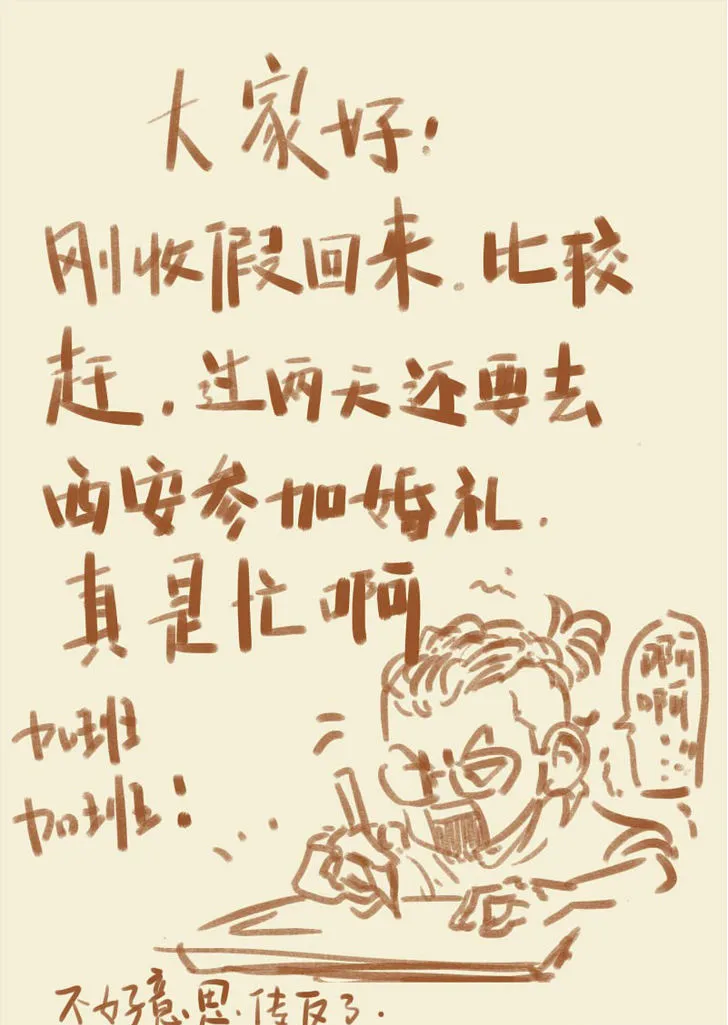 大家好:
刚收假回来.比较
赶.过两天还要去
西安参加婚礼.
真是忙啊
啊
啊
加班
加班:
不好意思.传反了.